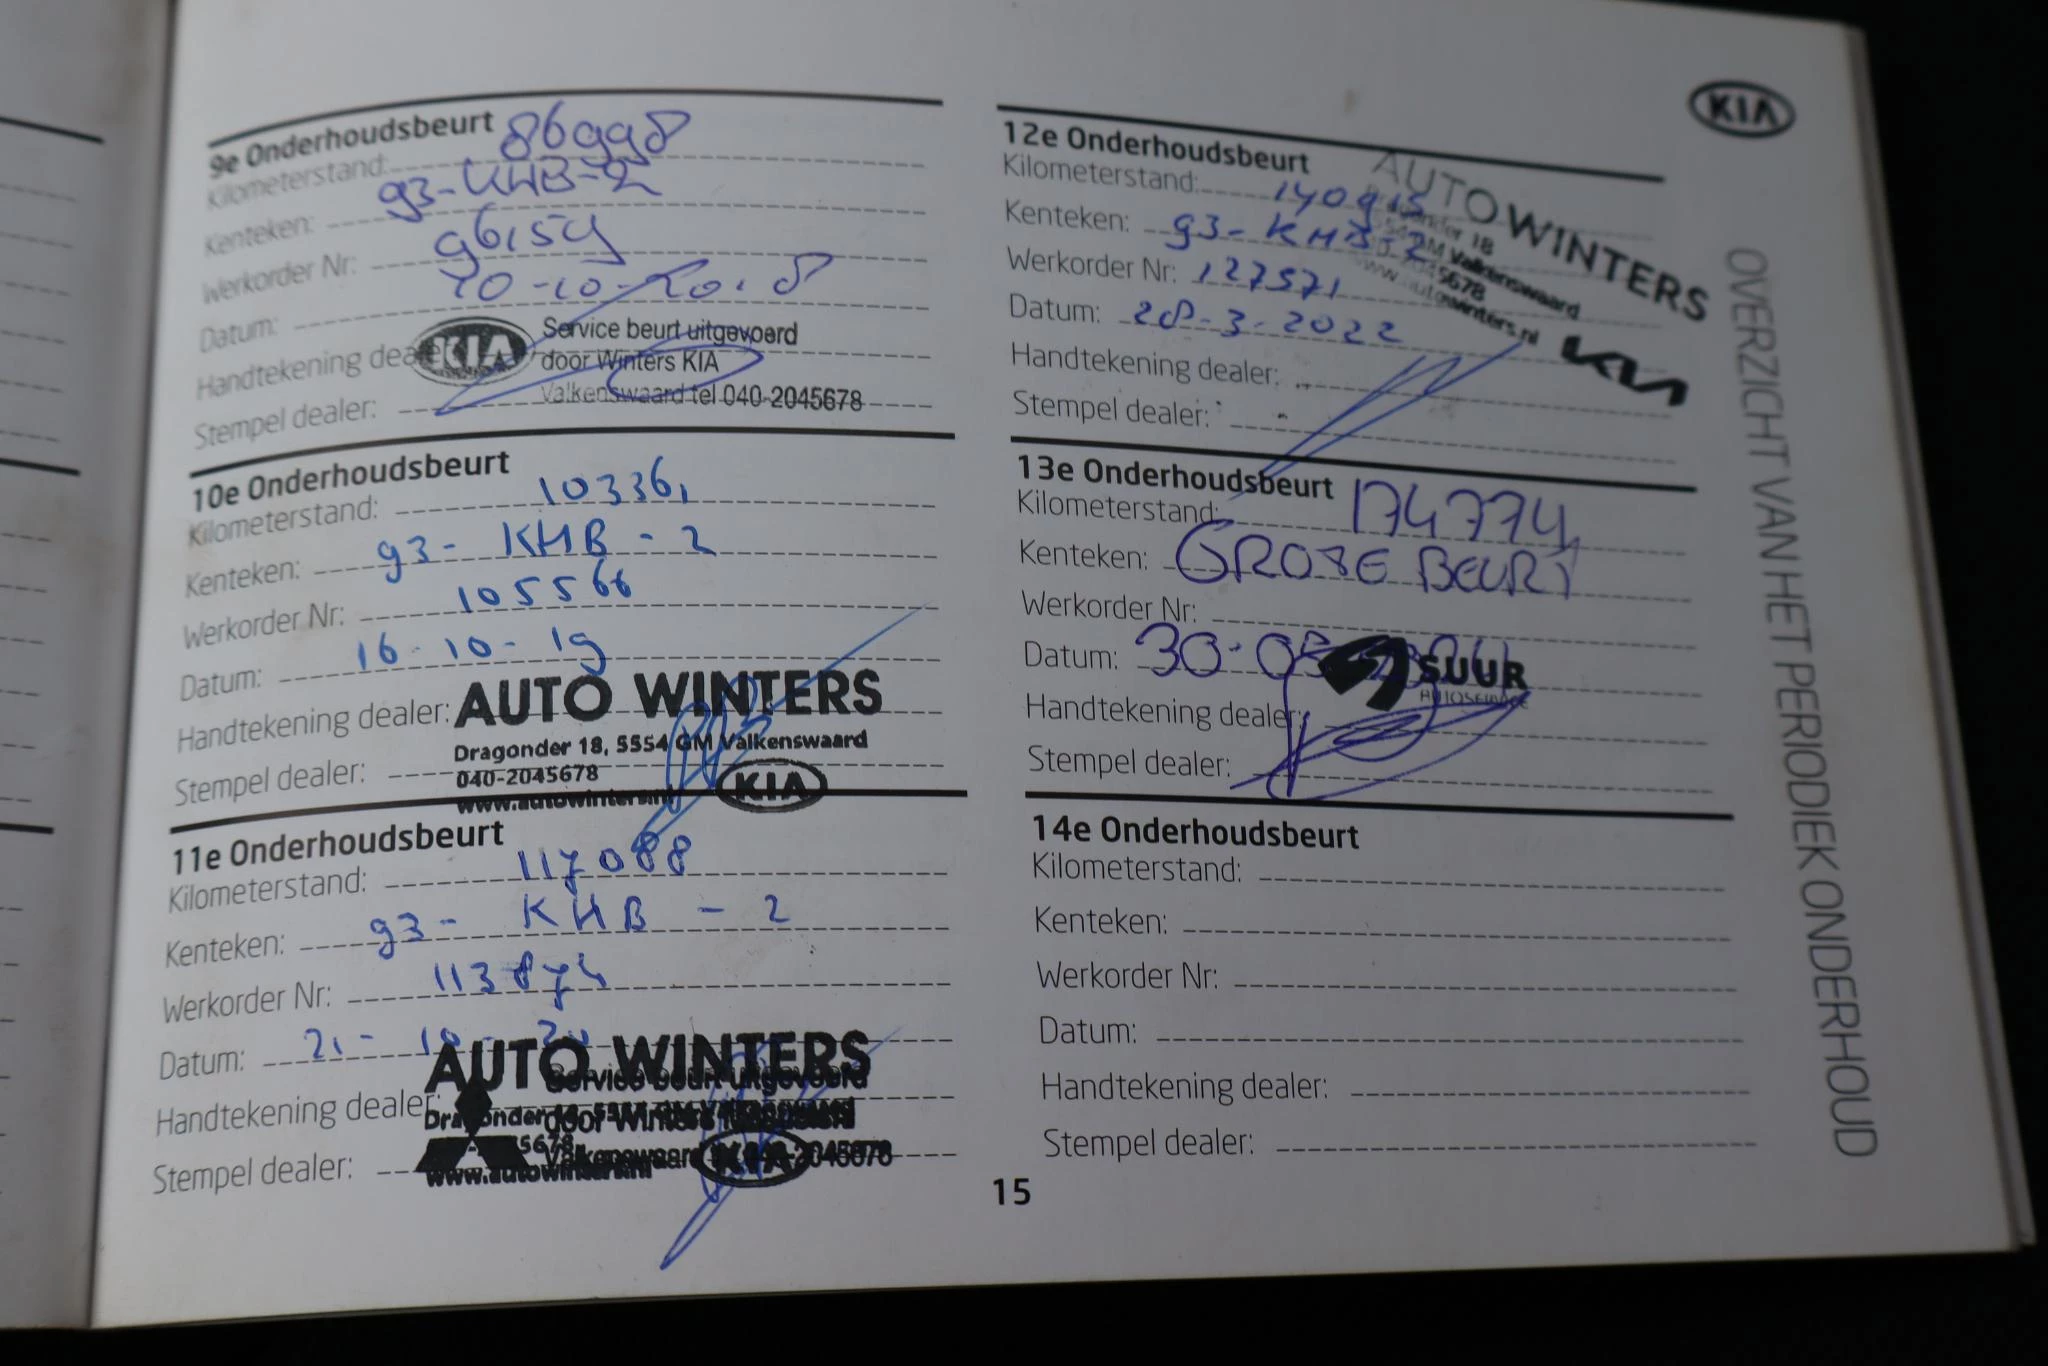 9e Onderhoudsbeurt
Kilometerstand: 86998
Kenteken: 93-KHB-2
Werkorder Nr: 96154
Datum: 10-10-2018
Handtekening dealer:
KIA
Service beurt uitgevoerd
door Winters KIA
Valkenswaard tel 040-2045678
Stempel dealer:
10e Onderhoudsbeurt
Kilometerstand: 103361
Kenteken: 93-KHB-2
Werkorder Nr: 105566
Datum: 16-10-19
Handtekening dealer:
AUTO WINTERS
Dragonder 18, 5554 GM Valkenswaard
040-2045678
www.autowinters.nl
KIA
Stempel dealer:
11e Onderhoudsbeurt
Kilometerstand: 117088
Kenteken: 93-KHB-2
Werkorder Nr: 113874
Datum: 21-10-20
Handtekening dealer:
AUTO WINTERS
Service beurt uitgevoerd
Dragonder door Winters
5678 Valkenswaard 2045678
www.autowinters.nl
KIA
Stempel dealer:
12e Onderhoudsbeurt
Kilometerstand: 140915
Kenteken: 93-KHB-2
Werkorder Nr: 127571
Datum: 28-3-2022
Handtekening dealer:
Stempel dealer:
AUTO WINTERS
Dragonder 18
5554 GM Valkenswaard
040-2045678
www.autowinters.nl
KIA
13e Onderhoudsbeurt
Kilometerstand: 174774
Kenteken: GROTE BEURT
Werkorder Nr:
Datum: 30-05
SUUR
AUTOSERVICE
Handtekening dealer:
Stempel dealer:
14e Onderhoudsbeurt
Kilometerstand:
Kenteken:
Werkorder Nr:
Datum:
Handtekening dealer:
Stempel dealer:
15
KIA
OVERZICHT VAN HET PERIODIEK ONDERHOUD